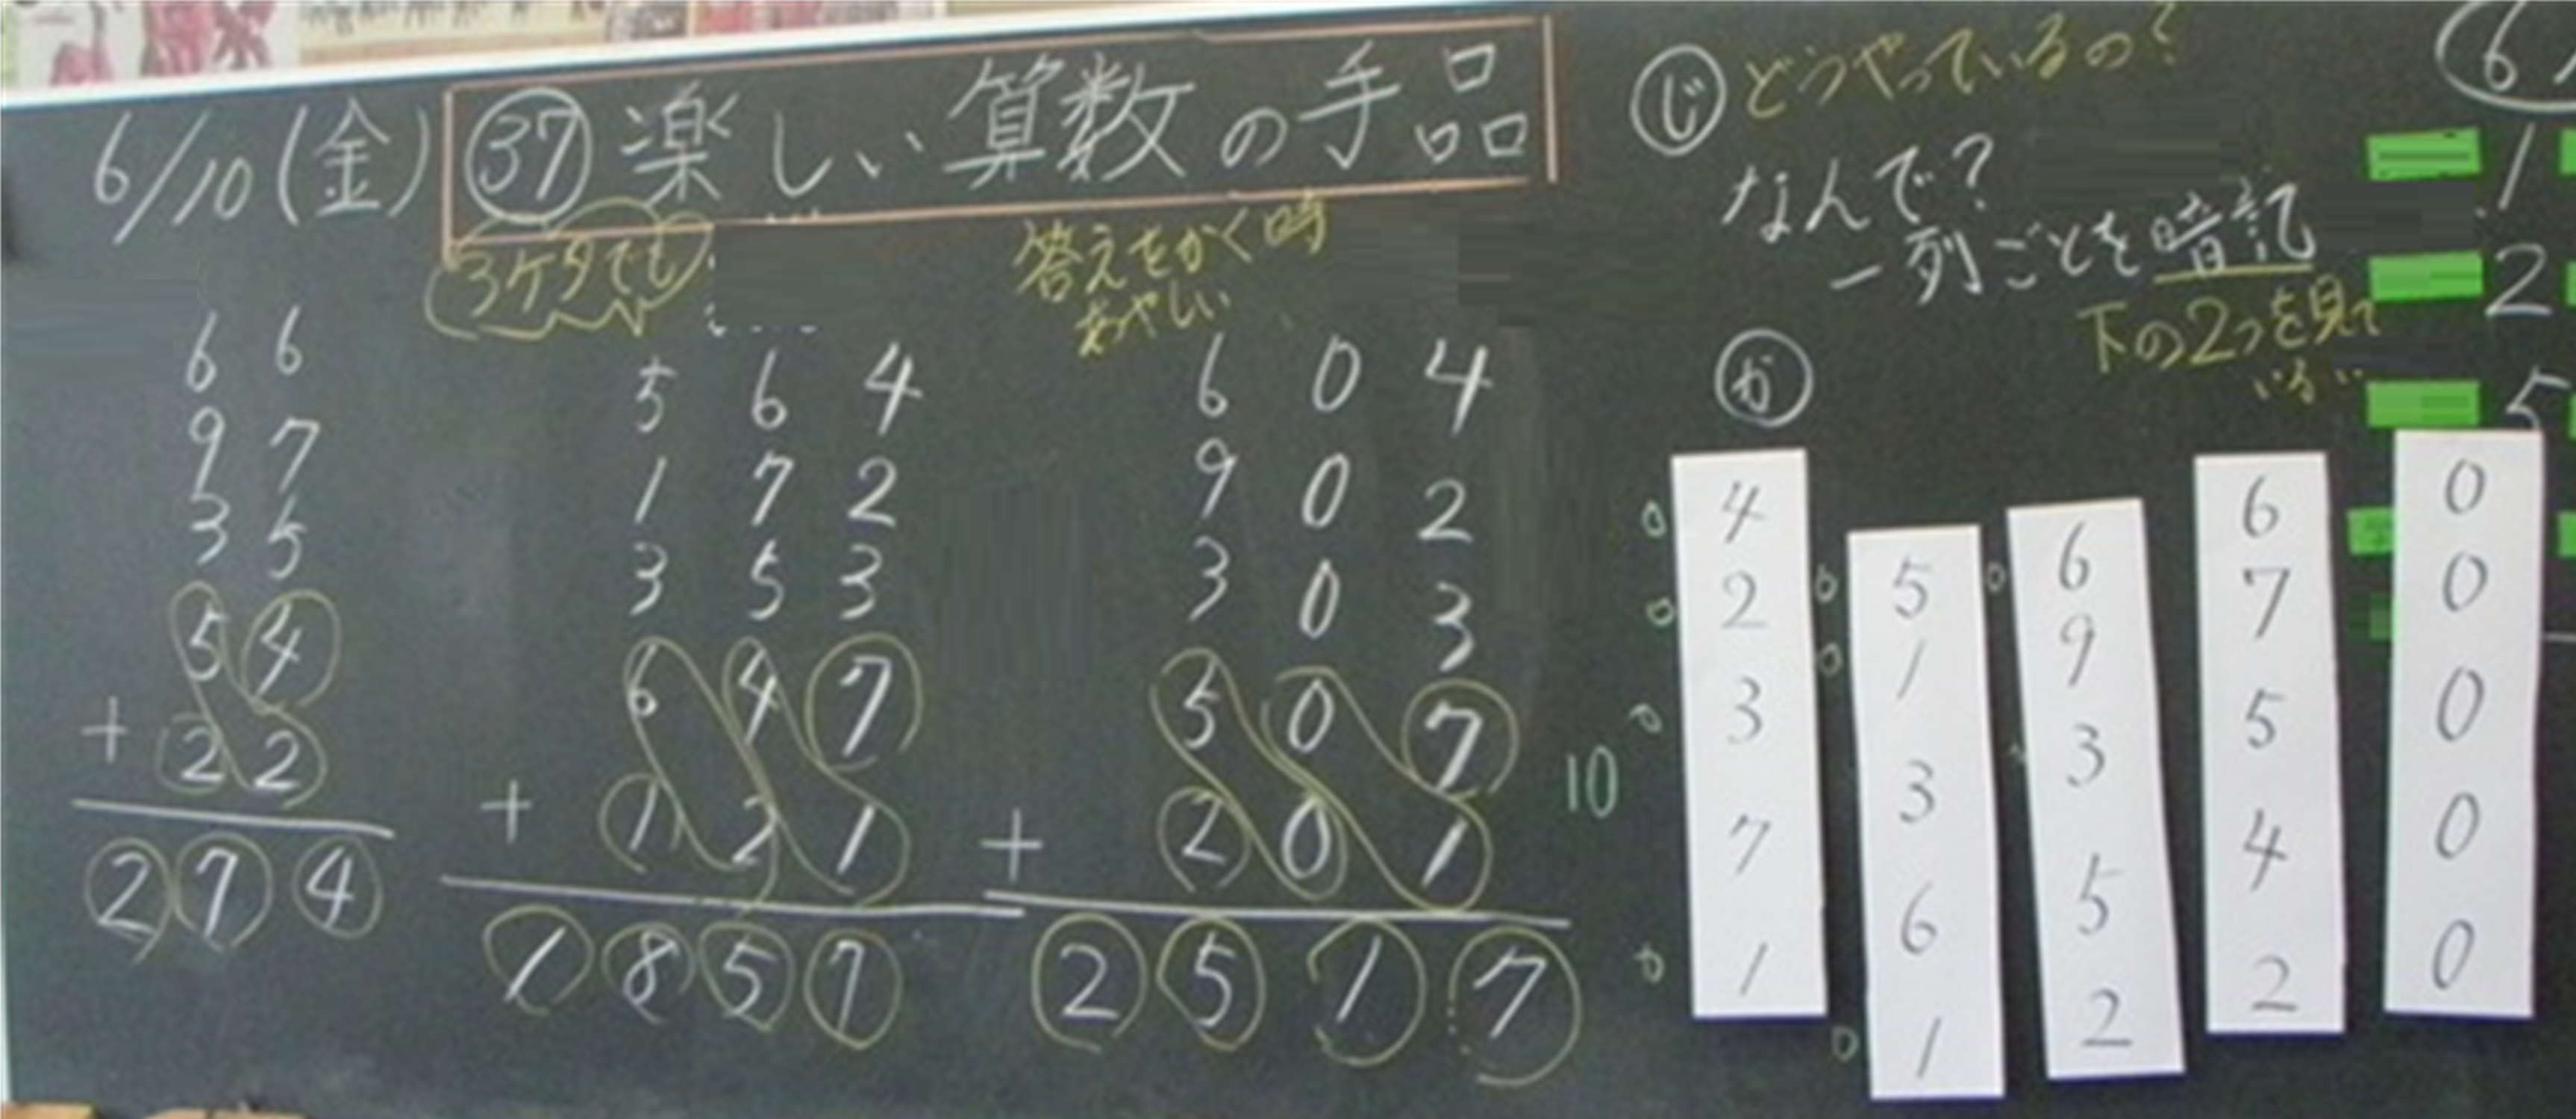 6/10(金) ㊲ 楽しい算数の手品
3ケタでも
答えをかく時
あやしい
6 6
9 7
3 5
5 4
+ 2 2
2 7 4
5 6 4
1 7 2
3 5 3
6 4 7
+ 1 2 1
1 8 5 7
6 0 4
9 0 2
3 0 3
5 0 7
+ 2 0 1
2 5 1 7
じ どうやっているの?
なんで?
一列ごとを暗記
下の2つを見て
いる
か
10
4
2
3
7
1
5
1
3
6
1
6
9
3
5
2
6
7
5
4
2
0
0
0
0
0
6
1
2
5